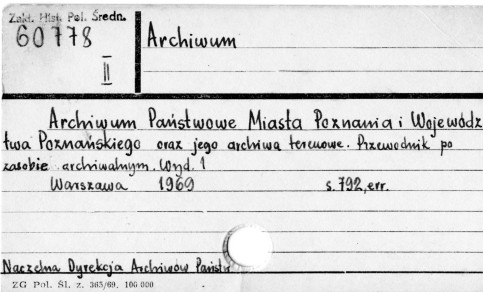 Zakł. Hist. Pol. Średn.
60778
II
Archiwum
Archiwum Państwowe Miasta Poznania i Wojewódz
twa Poznańskiego oraz jego archiwa terenowe. Przewodnik po
zasobie archiwalnym. Wyd. 1
Warszawa 1969 s. 792, err.
Naczelna Dyrekcja Archiwów Państw
ZG Pol. Śl. z. 363/69. 100 000